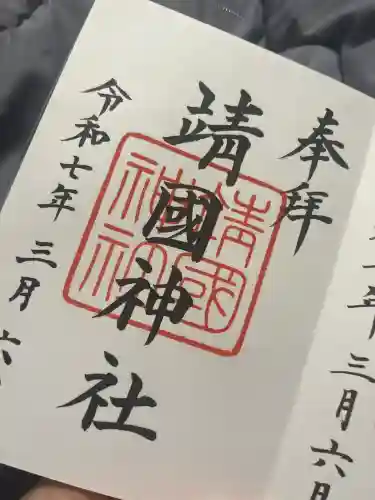 奉拝
靖國神社
令和七年三月六
靖國
神社
年三月六日